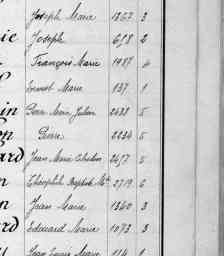 Joseph Marie 1267 3
ie Joseph 678 2
François Marie 1987 4
Ernest Marie 137 1
in Pierre Marie Julien 2438 5
on Pierre 2234 5
ard Jean Marie 2477 5
n Théophile Baptiste Mie 2719 6
n Jean Marie 1340 3
rd Edouard Marie 1073 3
Jean Louis Marie 114 1